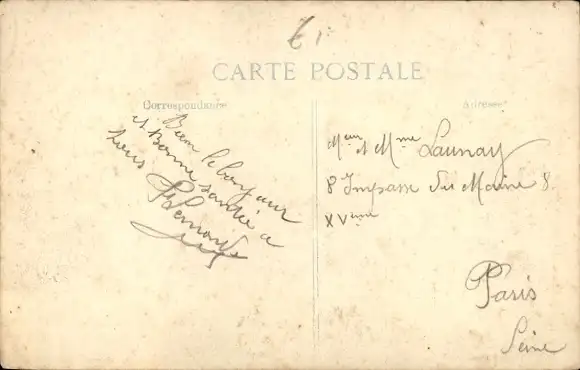 61
CARTE POSTALE
Correspondance
Adresse
Bien le bonjour
et Bonne santé a
tous
Meur et Mme Launay
8 Impasse du Maine 8.
XVème
Paris
Seine